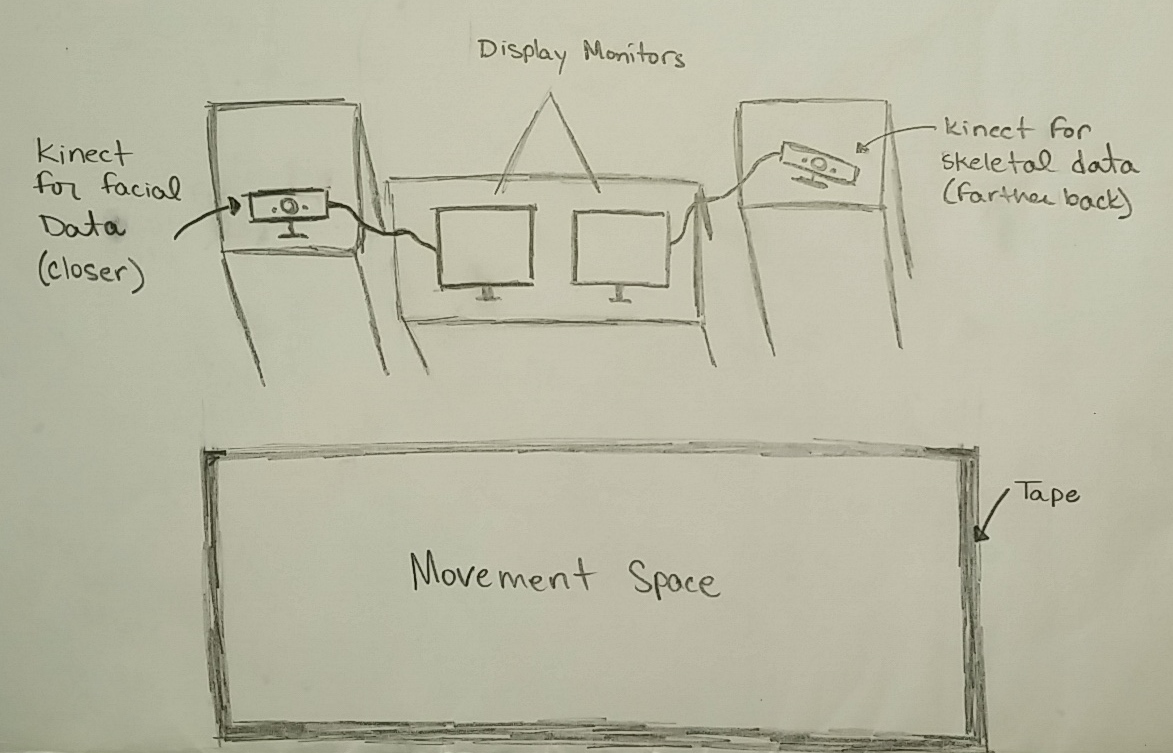 Display Monitors
Kinect
for facial
Data
(closer)
Kinect for
skeletal data
(farther back)
Tape
Movement Space